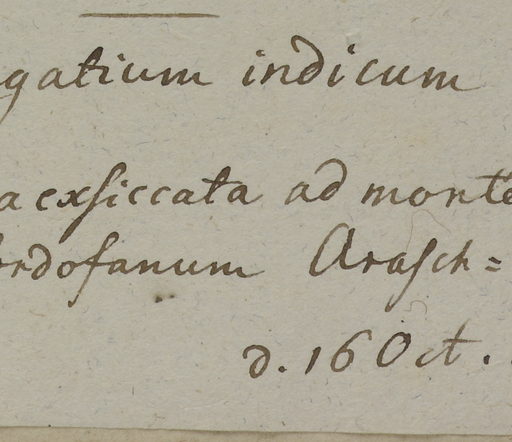 gatium indicum
a exsiccata ad monte
ordofanum Arasch=
d. 16 Oct.